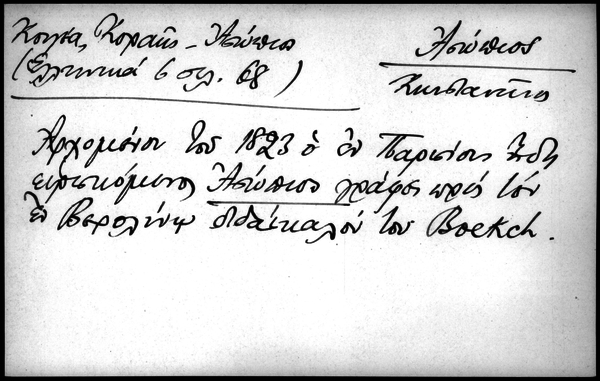 Κούκα, Κοραής - Ἀσώπιος
(Ἑλληνικά 6 σελ. 68)
Ἀσώπιος
Κωνσταντῖνος
Ἀρχομένου τοῦ 1823 ὁ ἐν Παρισίοις ἤδη
εὑρισκόμενος Ἀσώπιος γράφει πρός τόν
ἐν Βερολίνῳ διδάσκαλόν του Boekch.